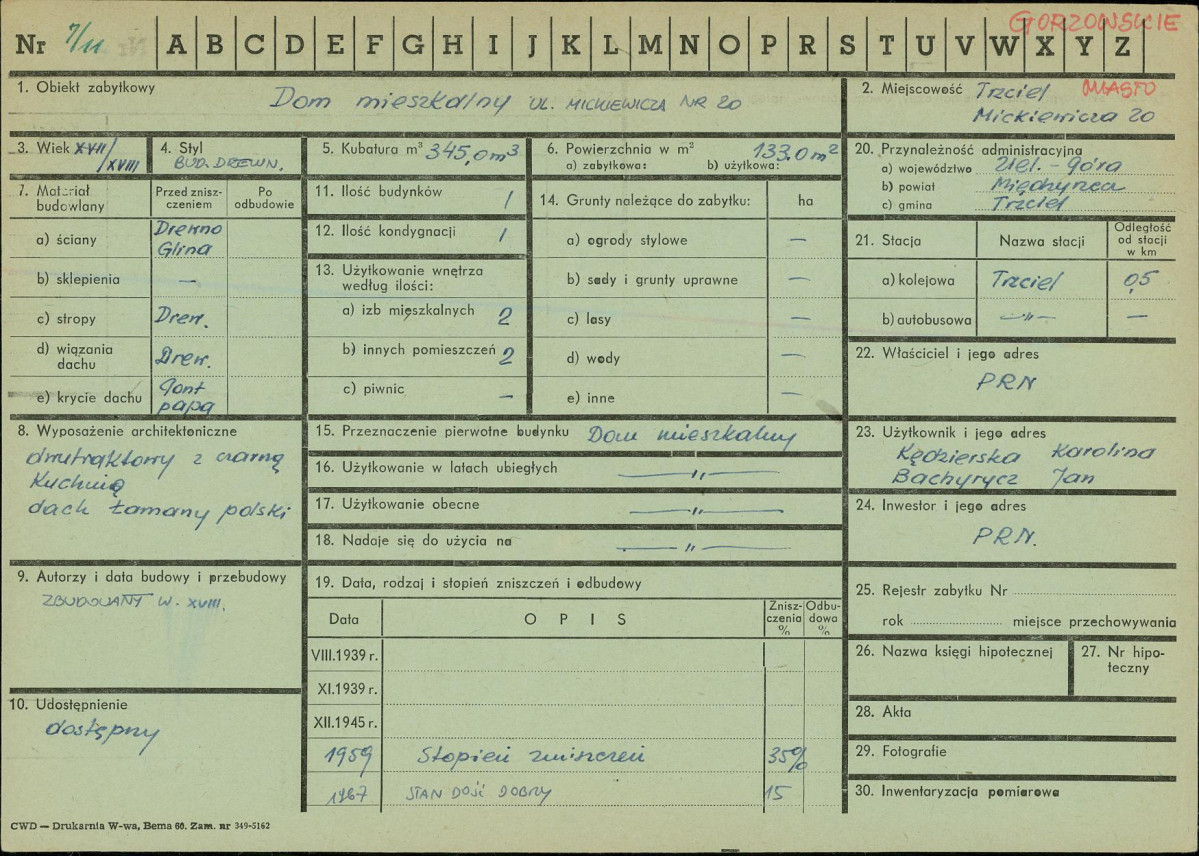 Nr 7/11 A B C D E F G H I J K L M N O P R S T U V W X Y Z
GORZOWSKIE
1. Obiekt zabytkowy Dom mieszkalny UL. MICKIEWICZA NR 20
2. Miejscowość Trzciel MIASTO
Mickiewicza 20
3. Wiek XVII/XVIII
4. Styl
BUD. DREWN.
5. Kubatura m³ 345,0 m³
6. Powierzchnia w m² 133.0 m²
a) zabytkowa: b) użytkowa:
7. Materiał budowlany
Przed zniszczeniem
Po odbudowie
a) ściany Drewno
Glina
b) sklepienia —
c) stropy Drew.
d) wiązania dachu Drew.
e) krycie dachu Gont
papa
8. Wyposażenie architektoniczne
dwutraktowy z czarną
Kuchnią
dach łamany polski
9. Autorzy i data budowy i przebudowy
ZBUDOWANY W. XVIII.
10. Udostępnienie
dostępny
11. Ilość budynków 1
12. Ilość kondygnacji 1
13. Użytkowanie wnętrza
według ilości:
a) izb mieszkalnych 2
b) innych pomieszczeń 2
c) piwnic —
14. Grunty należące do zabytku: ha
a) ogrody stylowe —
b) sady i grunty uprawne —
c) lasy —
d) wody —
e) inne —
15. Przeznaczenie pierwotne budynku Dom mieszkalny
16. Użytkowanie w latach ubiegłych —"—
17. Użytkowanie obecne —"—
18. Nadaje się do użycia na —"—
19. Data, rodzaj i stopień zniszczeń i odbudowy
Data OPIS Zniszczenia % Odbudowa %
VIII.1939 r.
XI.1939 r.
XII.1945 r.
1959 Stopień zniszczeń 35%
1967 STAN DOŚĆ DOBRY 15
20. Przynależność administracyjna
a) województwo Ziel.-Góra
b) powiat Międzyrzecz
c) gmina Trzciel
21. Stacja Nazwa stacji Odległość od stacji w km
a) kolejowa Trzciel 0,5
b) autobusowa —"— —
22. Właściciel i jego adres
PRN
23. Użytkownik i jego adres
Kędzierska Karolina
Bachyrycz Jan
24. Inwestor i jego adres
PRN.
25. Rejestr zabytku Nr
rok miejsce przechowywania
26. Nazwa księgi hipotecznej
27. Nr hipoteczny
28. Akta
29. Fotografie
30. Inwentaryzacja pomiarowa
CWD — Drukarnia W-wa, Bema 60. Zam. nr 349-5162